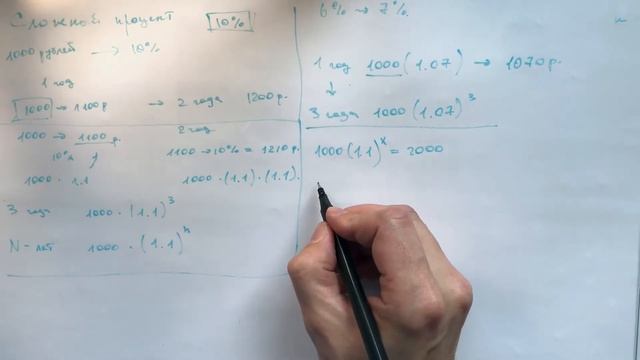 Сложный процент 10%
1000 рублей → 10%
1 год
1000 → 1100р → 2 года 1200р.
1000 → 1100р.
10%
1000 · 1.1
2 год
1100 → 10% = 1210р.
1000 · (1.1) · (1.1).
3 года 1000 · (1.1)³
N - лет 1000 · (1.1)ⁿ
6% → 7%.
1 год 1000 (1.07) → 1070р.
↓
3 года 1000 (1.07)³
1000 (1.1)ˣ = 2000